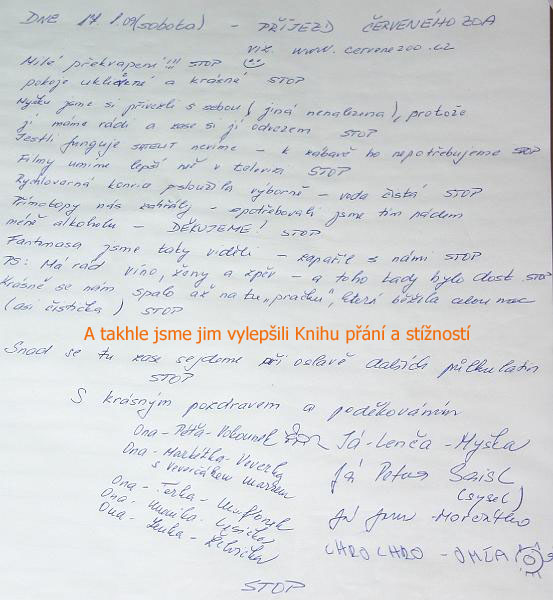 DNE 17.1.09 (sobota) - PŘÍJEZD ČERVENÉHO ZOA
viz. www.cervenezoo.cz
Milé překvapení!!! STOP
pokoje uklizené a krásné STOP
Myšku jsme si přivezli s sebou (jiná nenalezena), protože
ji máme rádi a zase si ji odvezem STOP
Jestli funguje SATELIT nevíme - k zábavě ho nepotřebujeme STOP
Filmy umíme lepší než v televizi STOP
Rychlovarná konvice posloužila výborně - voda čistá STOP
Přímotopy nás zahřály - spotřebovali jsme tím pádem
méně alkoholu - DĚKUJEME! STOP
Fantomasa jsme taky viděli - zapařil s námi STOP
PS: Má rád víno, ženy a zpěv - a toho tady bylo dost STOP
Krásně se nám spalo až na tu "pračku", která běžela celou noc
(asi čistička) STOP
A takhle jsme jim vylepšili Knihu přání a stížností
Snad se tu zase sejdeme při oslavě dalších půlkulatin
STOP
S krásným pozdravem a poděkováním
Ona - Péťa -
Já - Lenča - Myška
Ona - Markétka - Veverka
s veverčákem
Já Petr
(sysel)
Ona - Terka -
Ona -
Ona - Lenka -
Já
CHROCHRO -
STOP